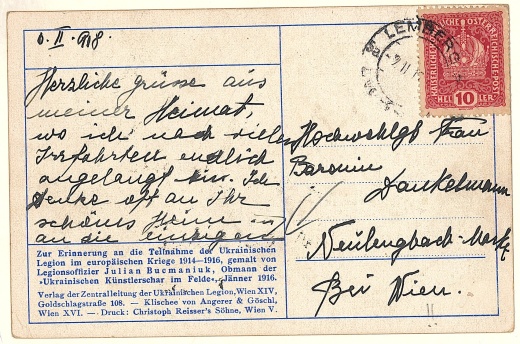 II. 918.
Herzliche grüsse aus
meiner Heimat,
wo ich nach vielen
Irrfahrten endlich
angelangt bin. Ich
denke oft an Ihr
schönes Heim u
an die einzigen
LEMBERG
KAISERLICHE KÖNIGLICHE ÖSTERREICHISCHE POST
HELLER 10
Hochwohlgb Frau
Baronin
Dankelmann
Neulengbach-Markt
Bei Wien.
Zur Erinnerung an die Teilnahme der Ukrainischen
Legion im europäischen Kriege 1914–1916, gemalt von
Legionsoffizier Julian Bucmaniuk, Obmann der
»Ukrainischen Künstlerschar im Felde«, Jänner 1916.
Verlag der Zentralleitung der Ukrainischen Legion, Wien XIV,
Goldschlagstraße 108. — Klischee von Angerer & Göschl,
Wien XVI. — Druck: Christoph Reisser's Söhne, Wien V.